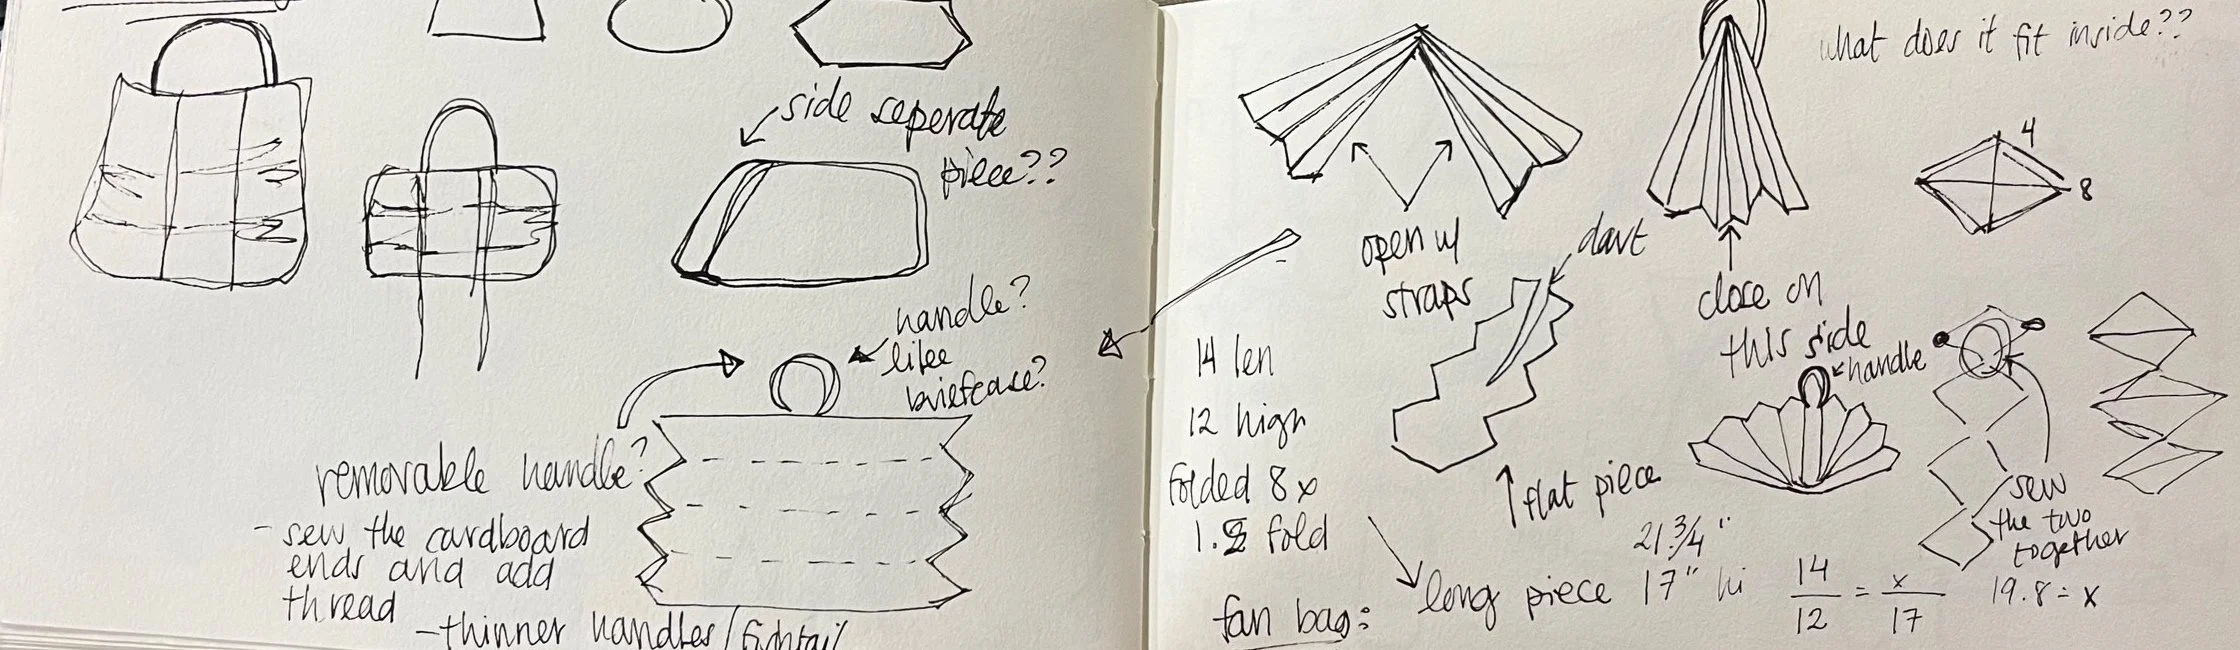 side seperate
piece??
handle?
like
briefcase?
removable handle?
- sew the cardboard
ends and add
thread
- thinner handles/
what does it fit inside??
4
8
open w/
straps
dart
close on
this side
handle
14 len
12 high
folded 8x
1.5 fold
flat piece
sew
the two
together
fan bag:
long piece
21 3/4"
17" hi
14/12 = x/17
19.8 = x